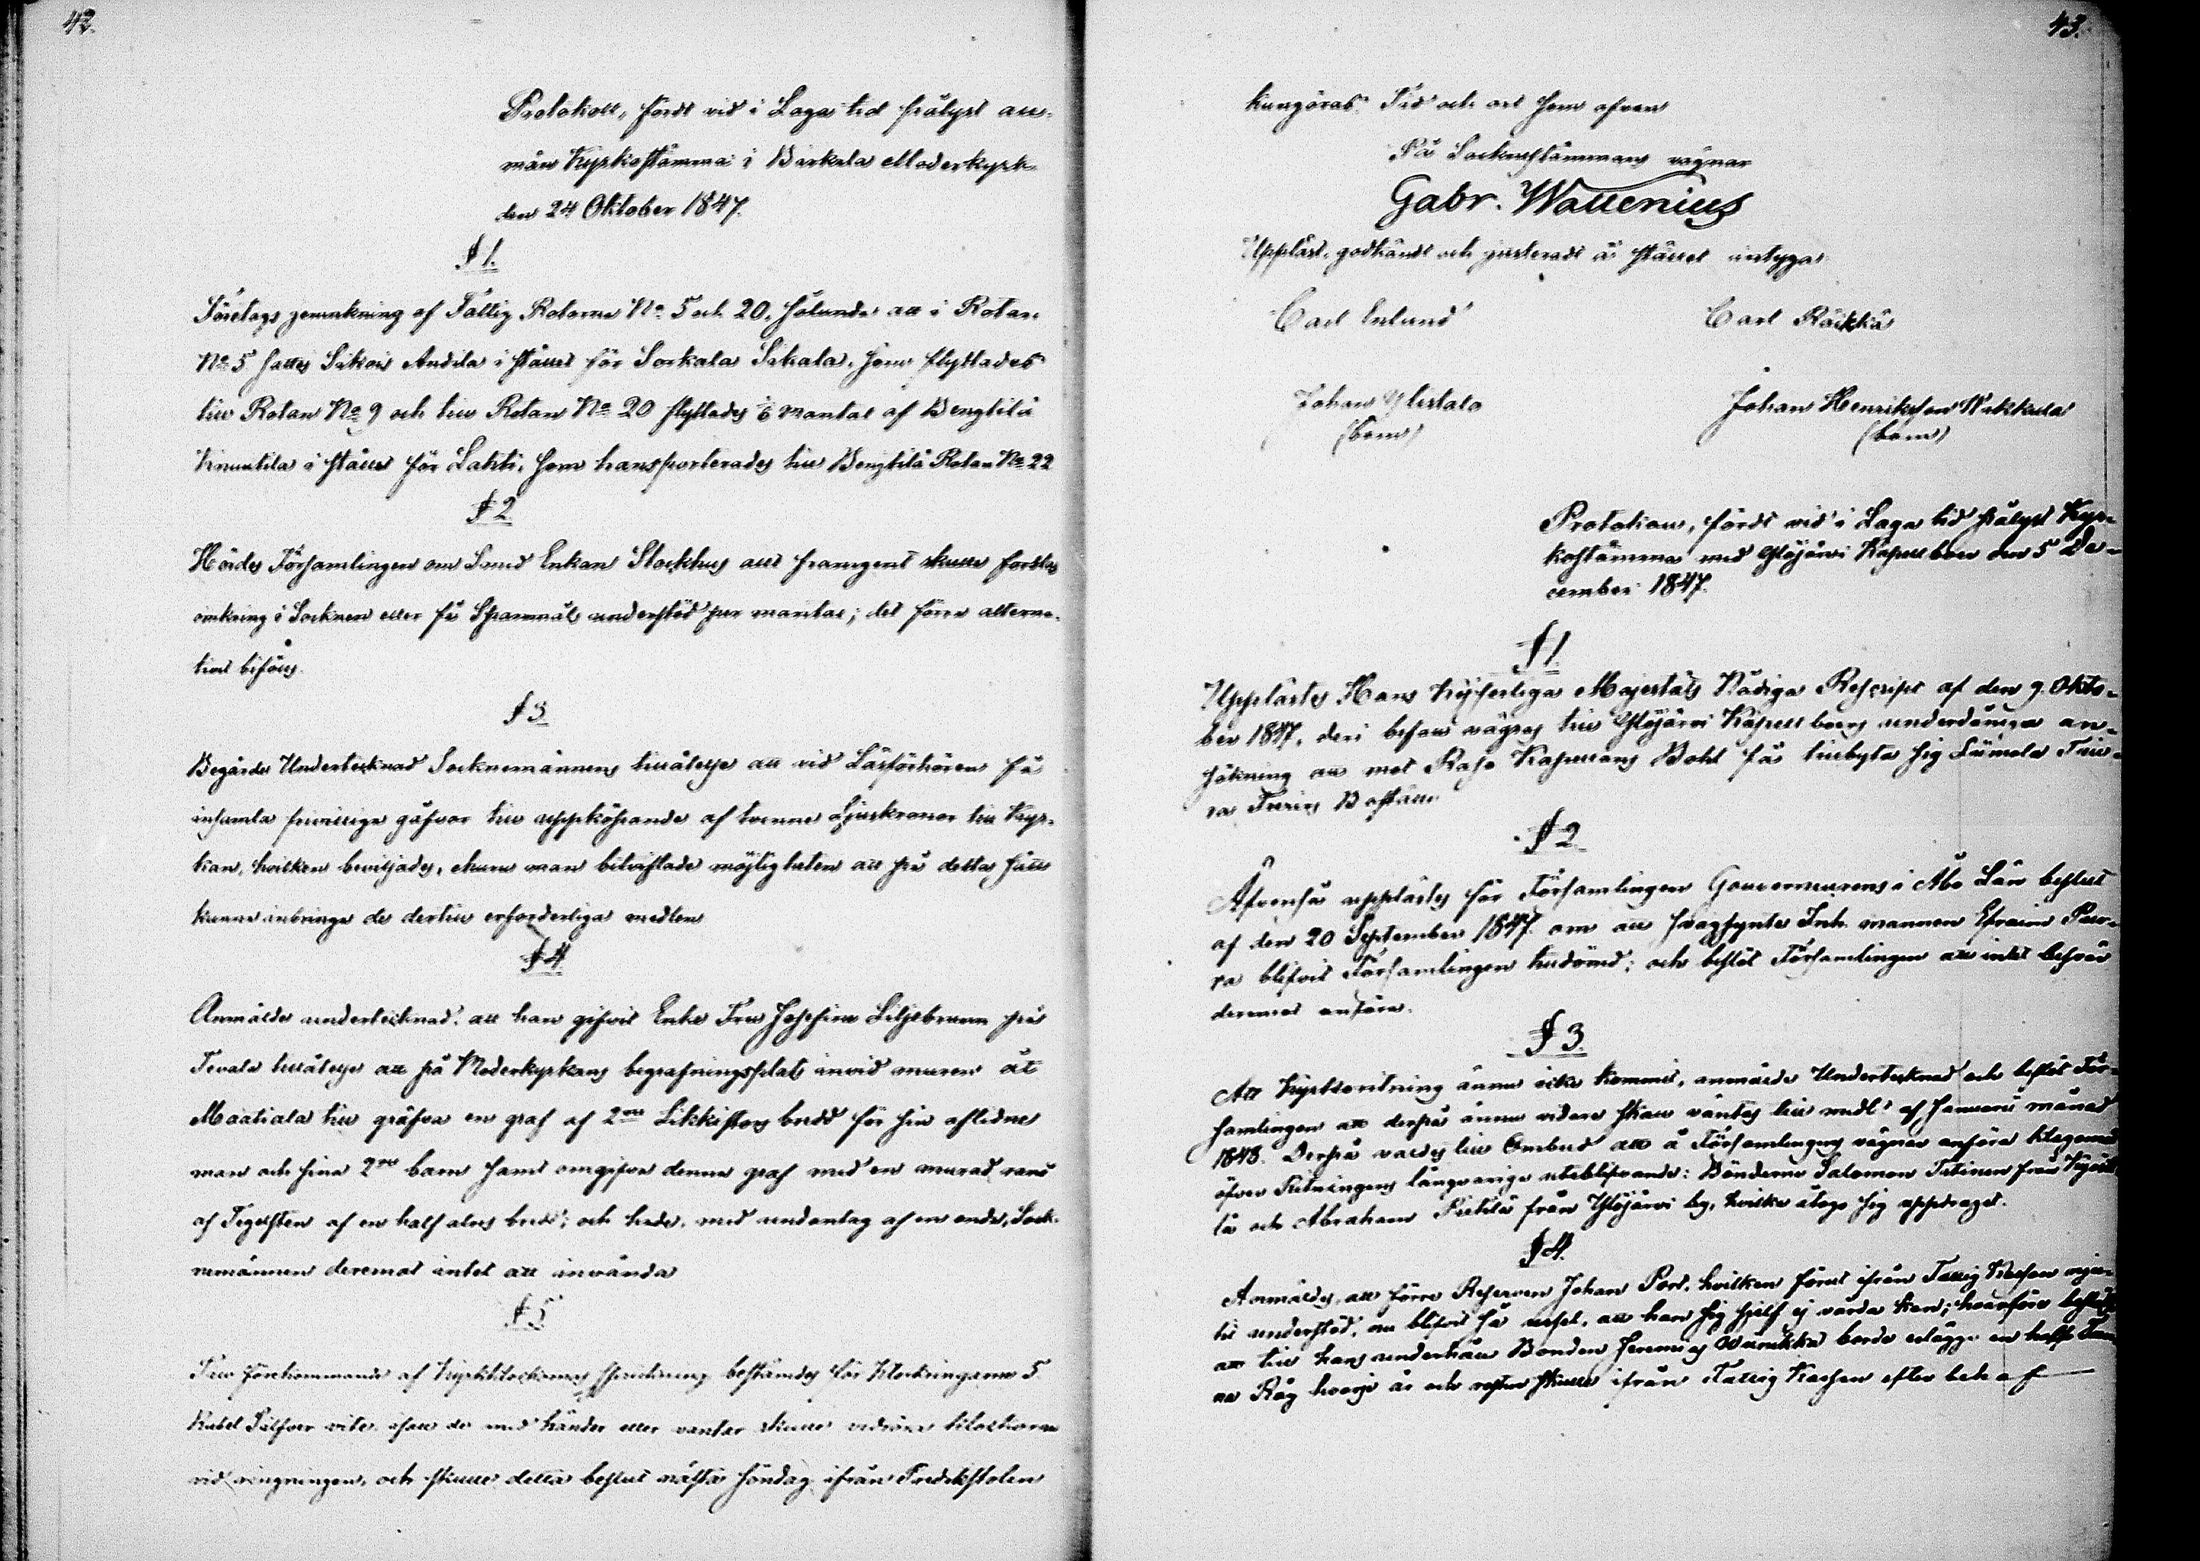 42.
Protokoll, fördt vid i Laga tid pålyst all-
män Kyrkostämma i Birkala Moderkyrk.
den 24 Oktober 1847.
§ 1.
Företogs jemnkning af Fattig Rotarne No 5 och 20, sålunda att i Rotan
No 5 sattes Sikois Andila i stället för Sorkala Sihala, som flyttades
till Rotan No 9 och till Rotan No 20 flyttades mantal af Bengtilä
Knuutila i stället för Lahti, som transporterades till Bengtilä Rotan No 22
§ 2.
Hördes Församlingen om Smed Enkan Stockhus allt framgent skulle forslas
omkring i Socknen eller få Spannmåls understöd per mantal; det förra alterna-
tivet bifölls.
§ 3.
Begärde Undertecknad Socknemännens tillåtelse att vid Läsförhören få
insamla frivilliga gåfvor till uppköpande af tvenne Ljuskronor till Kyr-
kan, hvilken beviljades, ehuru man betviflade möjligheten att på detta sätt
kunna inbringa de dertill erforderliga medlen
§ 4.
Anmälde undertecknad, att han gifvit Enke Fru Josefina Liljebrunn på
Tevala tillåtelse att på Moderkyrkans begrafningsplats invid muren åt
Maatiala till gräfva en graf af 2ne Likkistors bredd för sin aflidne
man och sina 2ne barn samt omgifva denna graf med en murad rand
af Tegelsten af en half alns bredd; och hade, med undantag af en enda, Sock-
nemännen deremot intet att invända
§ 5.
Till förekommande af Kyrkklockornas spruckning bestämdes för Klockringarne 5
Rubel Silfver vite, ifall de med händer eller vantar skulle vidröra klockorna
vid ringningen, och skulle detta beslut nästa söndag ifrån Predikstolen
43.
kungöras. Tid och ort som ofvan
På Sockenstämmans vägnar
Gabr. Wallenius
Uppläst, godkändt och justeradt å stället intygar
Carl Enlund Carl Räikkä
Johan Ylistalo Johan Henriksson Wakkala
(bom) (bom)
Protokoll, fördt vid i Laga tid pålyst Kyr-
kostämma med Ylöjärvi Kapell boer den 5 De-
cember 1847.
§ 1.
Upplästes Hans Kejserliga Majestäts Nådiga Rescript af den 9. Okto-
ber 1847, deri befall vägras till Ylöjärvi Kapell boers underdåniga an-
sökning att mot Kapellans Bohl få tillbyta sig
Boställe.
§ 2.
Äfvenså upplästes för Församlingen Gouverneurens i Åbo Län beslut
af den 20 September 1847 om att svagsynte Inh. mannen Efraim Pur-
ra blifvit Församlingen tilldömd; och beslöt Församlingen att intet besvär
deremot anföra.
§ 3.
Att Kyrkoritning ännu icke kommit, anmälde Undertecknad och beslöt För-
samlingen att derpå ännu vidare skall väntas till medl. af Januarii månad
1848. Derpå valdes till Ombud att å Församlingens vägnar anföra klagomål
öfver Ritningens långvariga uteblifvande: Bönderne Salomon från
och Abraham Pietilä från Ylöjärvi by, hvilka åtogo sig uppdraget.
§ 4.
Anmäldes, att förre Reserven Johan Port, hvilken förut ifrån Fattig Kassan
understöd, nu blifvit så usel, att han sig sjelf ej vårda kan; hvarföre beslöts
att till hans underhåll Bonden Jeremias borde erlägga en half Tun-
na Råg hvarje år och resten skulle ifrån Fattig Kassan efter behof